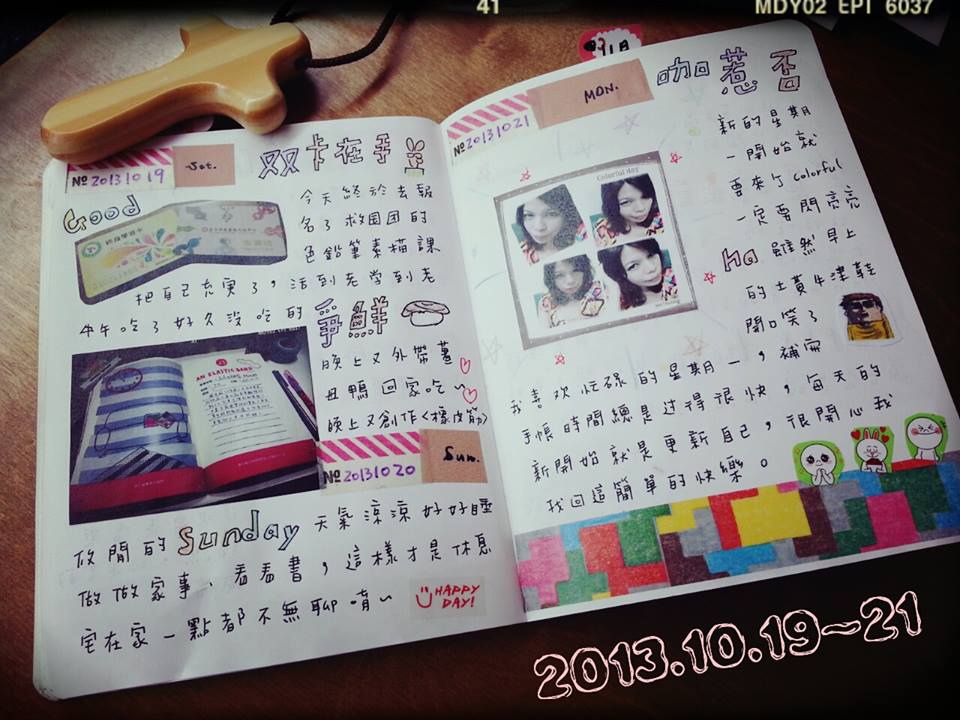 41
MDY02 EPI 6037
№20131019
Sat.
双卡在手
Good
今天終於去報
名了救國团的
色鉛筆素描課
把自己充實了，活到老学到老
牛牛吃了好久没吃的
爭鮮
晚上又外帶薑
母鴨回家吃~
晚上又創作<橡皮筋>
AN ELASTIC BAND
№20131020
Sun.
攸閒的Sunday天氣涼涼好好睡
做做家事、看看書，這樣才是休息
宅在家一點都不無聊唷~
HAPPY
DAY!
11月
№20131021
MON.
咖惹否
Colorful day
新的星期
一開始就
要來个colorful
一定要閃亮亮
Ha 雖然早上
的土黃牛津鞋
開口笑了
我喜欢忙碌的星期一，補齊
手帳時間總是过得很快，每天的
新開始就是更新自己，很開心我
找回這簡單的快樂。
2013.10.19~21